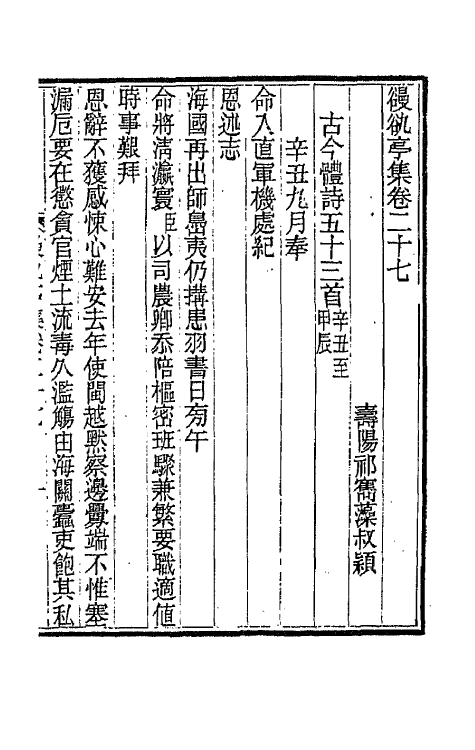 䜱䜪亭集卷二十七
壽陽祁寯藻叔穎
古今體詩五十三首辛丑至甲辰
辛丑九月奉
命入直軍機處紀
恩述志
海國再出師島夷仍搆患羽書日旁午
命將淸瀛寰臣以司農卿忝陪樞密班驟兼繁要職適値
時事艱拜
恩辭不獲感悚心難安去年使閩越默察邊釁端不惟塞
漏卮要在懲貪官煙土流毒久濫觴由海關蠹吏飽其私